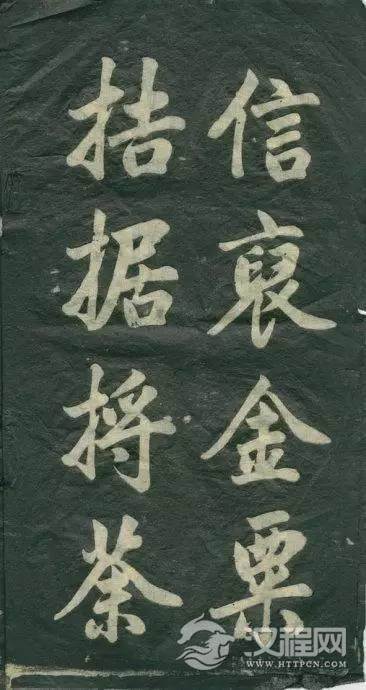 信裒金粟
拮据捋荼
汉程网
WWW.HTTPCN.COM